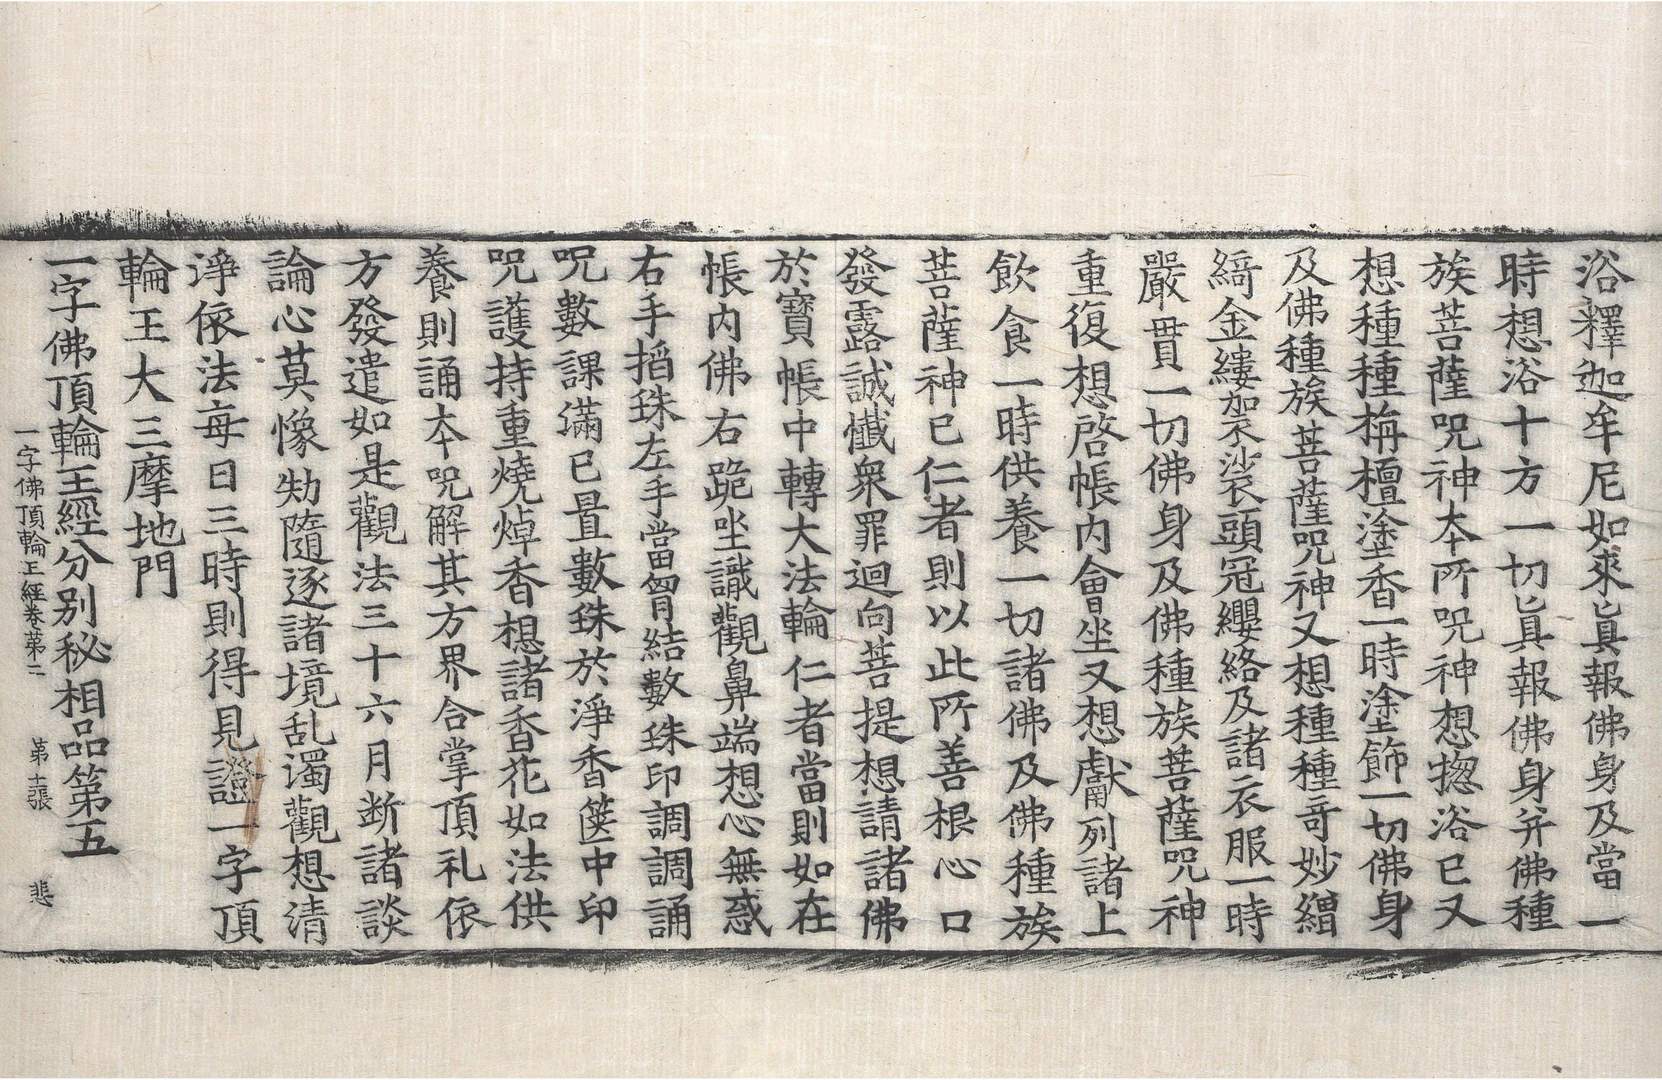 浴釋迦牟尼如來真報佛身及當一
時想浴十方一切真報佛身并佛種
族菩薩呪神本所呪神想揔浴已又
想種種栴檀塗香一時塗飾一切佛身
及佛種族菩薩呪神又想種種奇妙繒
綺金縷袈裟頭冠纓絡及諸衣服一時
嚴貫一切佛身及佛種族菩薩呪神
重復想啓帳內會坐又想獻列諸上
飲食一時供養一切諸佛及佛種族
菩薩神已仁者則以此所善根心口
發露誠懴衆罪迴向菩提想請諸佛
於寶帳中轉大法輪仁者當則如在
帳內佛右跪坐識觀鼻端想心無惑
右手搯珠左手當胷結數珠印調調誦
呪數課滿已置數珠於淨香篋中印
呪護持重燒焯香想諸香花如法供
養則誦本呪解其方界合掌頂礼依
方發遣如是觀法三十六月断諸談
論心莫像刼隨逐諸境乱濁觀想清
淨依法每日三時則得見證一字頂
輪王大三摩地門
一字佛頂輪王經分別秘相品第五
一字佛頂輪王經卷第二 第十張 悲